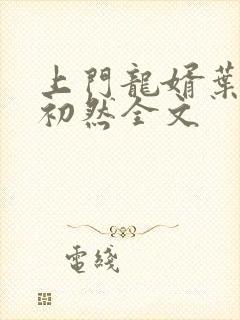 上門龍婿葉
初然全文
電綫